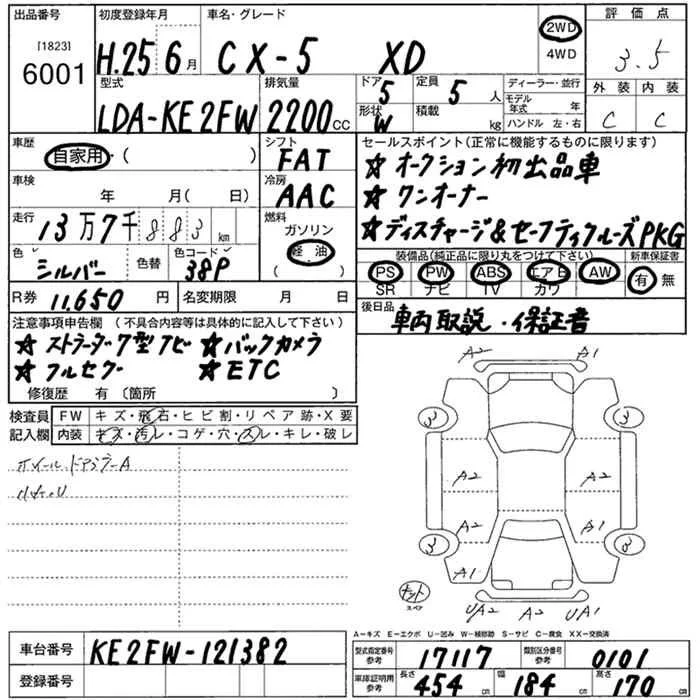 出品番号 初度登録年月 車名・グレード 2WD 評価点
[1823] 6001 H.25 6月 CX-5 XD 4WD 3.5
型式 排気量 ドア 5 定員 5人 ディーラー・並行 外装 内装
LDA-KE2FW 2200cc 形状 W 積載 kg モデル年式 年 C C
ハンドル 左・右
車歴 自家用・( ) シフト FAT セールスポイント(正常に機能するものに限ります)
★オークション初出品車
車検 年 月( 日) 冷房 AAC ★ワンオーナー
走行 13万7千883km 燃料 ガソリン ★ディスチャージ&セーフティクルーズPKG
軽油
( )
色 シルバー 色替 色コード 38P 装備品(純正品に限り丸をつけて下さい) 新車保証書
PS PW ABS エアB AW 有・無
SR ナビ TV カワ
R券 11,650円 名変期限 月 日 後日品 車両取説・保証書
注意事項申告欄 (不具合内容等は具体的に記入して下さい)
★ストラーダ7型ナビ ★バックカメラ
★フルセグ ★ETC
修復歴 有(箇所 )
検査員記入欄 FW キズ・飛石・ヒビ割・リペア跡・X要
内装 キズ・汚レ・コゲ・穴・スレ・キレ・破レ
A2 A1
3 3
A2 A2
A2 A1
3 3
A1
スペア UA2 A2 UA1
A-キズ E-エクボ U-凹み W-補修跡 S-サビ C-腐食 XX-交換済
車台番号 KE2FW-121382 型式指定番号 参考 17117 類別区分番号 参考 0101
登録番号 車庫証明用 参考 長さ 454cm 幅 184cm 高さ 170cm